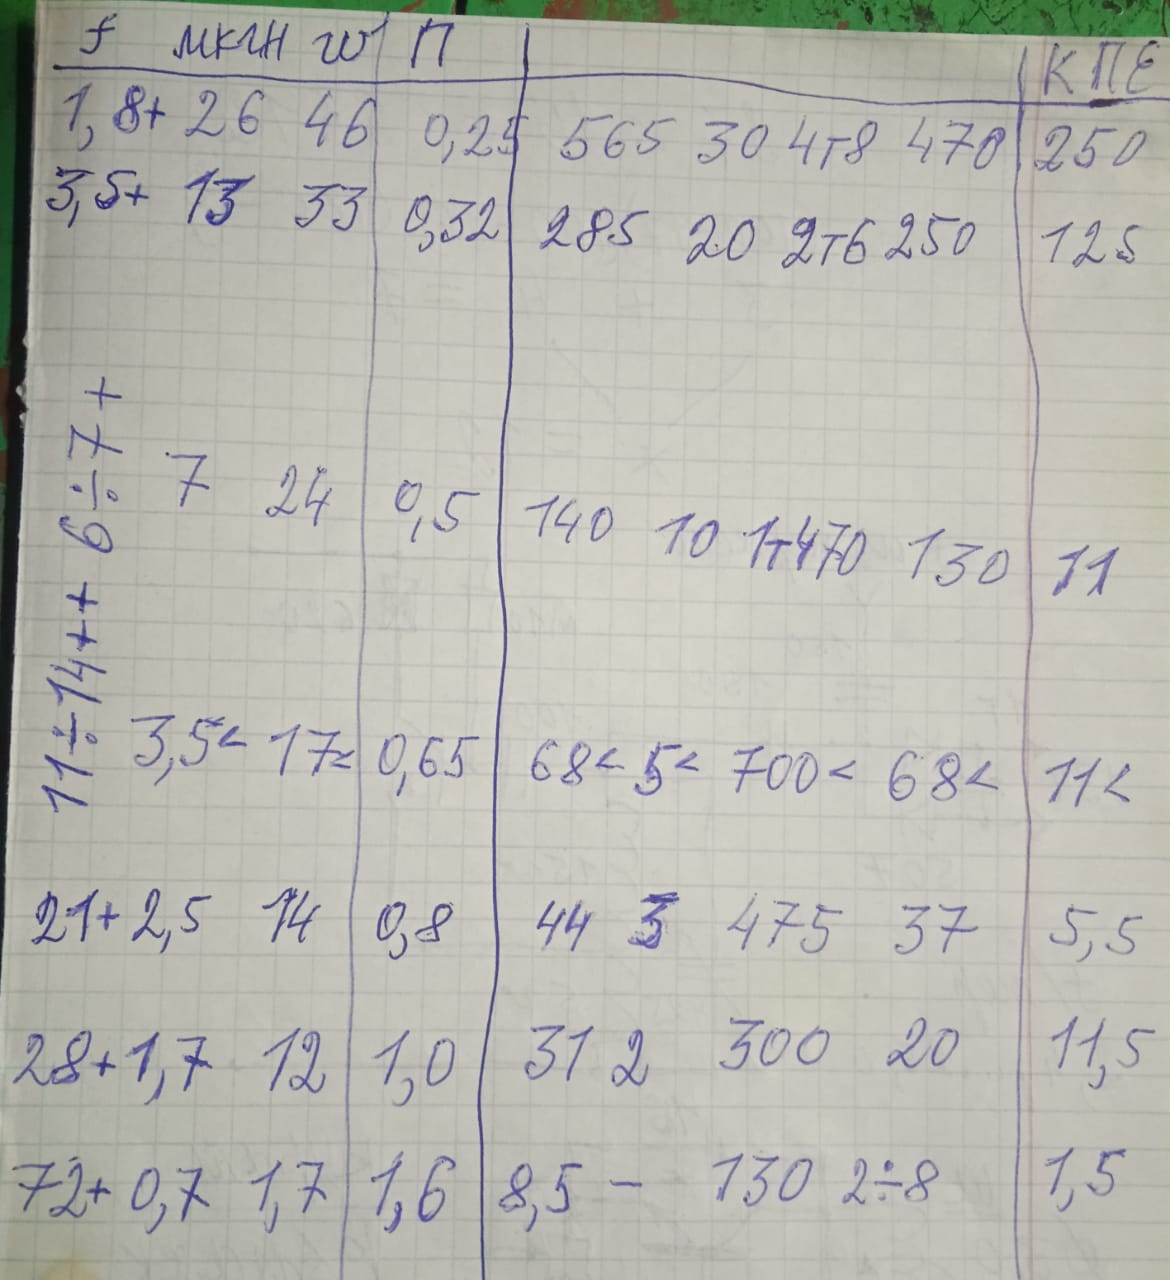 f мкгн w П КПЕ
1,8+ 26 46 0,25 565 30 4т8 470 250
3,5+ 13 33 0,32 285 20 2т6 250 125
6÷7+ 7 24 0,5 140 10 1т470 130 11
11÷14++ 3,5< 17< 0,65 68< 5< 700< 68< 11<
21+ 2,5 14 0,8 44 3 475 37 5,5
28+ 1,7 12 1,0 31 2 300 20 11,5
72+ 0,7 1,7 1,6 8,5 – 130 2÷8 1,5